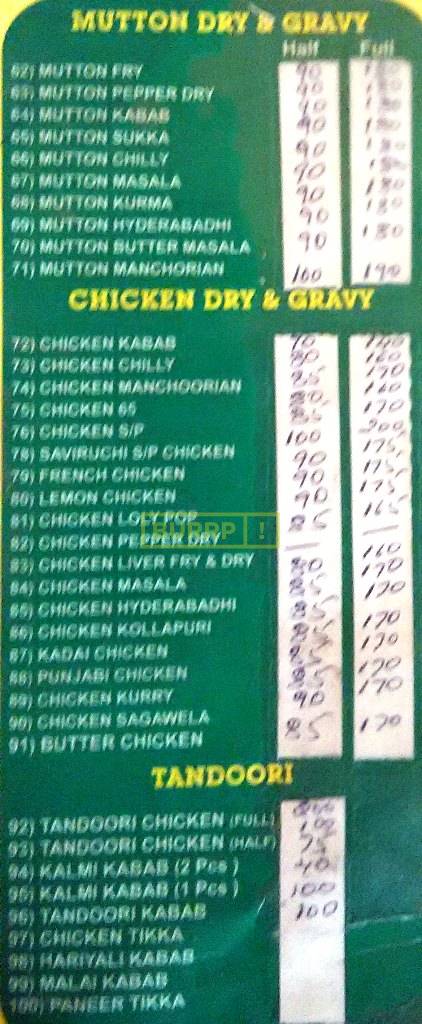 MUTTON DRY & GRAVY
Half Full
62) MUTTON FRY 90 180
63) MUTTON PEPPER DRY 90 180
64) MUTTON KABAB 90 180
65) MUTTON SUKKA 90 180
66) MUTTON CHILLY 90 180
67) MUTTON MASALA 90 180
68) MUTTON KURMA 90 180
69) MUTTON HYDERABADHI 90 180
70) MUTTON BUTTER MASALA 90
71) MUTTON MANCHORIAN 100 190
CHICKEN DRY & GRAVY
72) CHICKEN KABAB 70 140
73) CHICKEN CHILLY 80 160
74) CHICKEN MANCHOORIAN 85 170
75) CHICKEN 65 80 160
76) CHICKEN S/P 85 170
78) SAVIRUCHI S/P CHICKEN 100 200
79) FRENCH CHICKEN 90 175
80) LEMON CHICKEN 90 175
81) CHICKEN LOLY POP 90 175
82) CHICKEN PEPPER DRY 85 165
83) CHICKEN LIVER FRY & DRY
84) CHICKEN MASALA
85) CHICKEN HYDERABADHI
86) CHICKEN KOLLAPURI
87) KADAI CHICKEN
88) PUNJABI CHICKEN
89) CHICKEN KURRY
90) CHICKEN SAGAWELA 90
91) BUTTER CHICKEN 85 170
BURRP!
TANDOORI
92) TANDOORI CHICKEN (FULL)
93) TANDOORI CHICKEN (HALF)
94) KALMI KABAB (2 Pcs )
95) KALMI KABAB (1 Pcs ) 40
96) TANDOORI KABAB 100
97) CHICKEN TIKKA 100
98) HARIYALI KABAB
99) MALAI KABAB
100) PANEER TIKKA